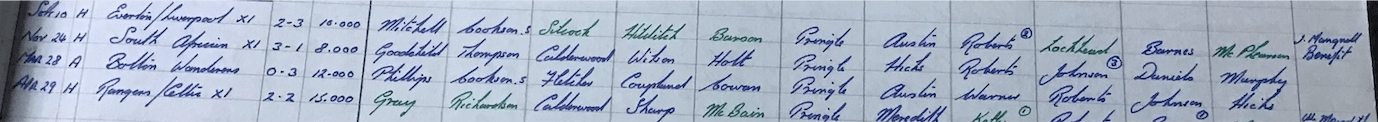 10 H Everton/Liverpool XI 2-3 10.000 Mitchell Cookson.S Silcock Hilditch Barson Pringle Austin Roberts② Lochhead Barnes McPherson J. Mangnall Benefit
Nov 24 H South African XI 3-1 8.000 Goodchild Thompson Calderwood Wilson Hott Pringle Hicks Roberts Johnson③ Daniels Murphy
MAR 28 A Bolton Wanderers 0-3 12.000 Phillips Cookson.S Fletcher Coupland Cowan Pringle Austin Warner Roberts Johnson Hicks
APR 29 H Rangers/Celtic XI 2-2 15,000 Gray Richardson Calderwood Sharp McBain Pringle Meredith